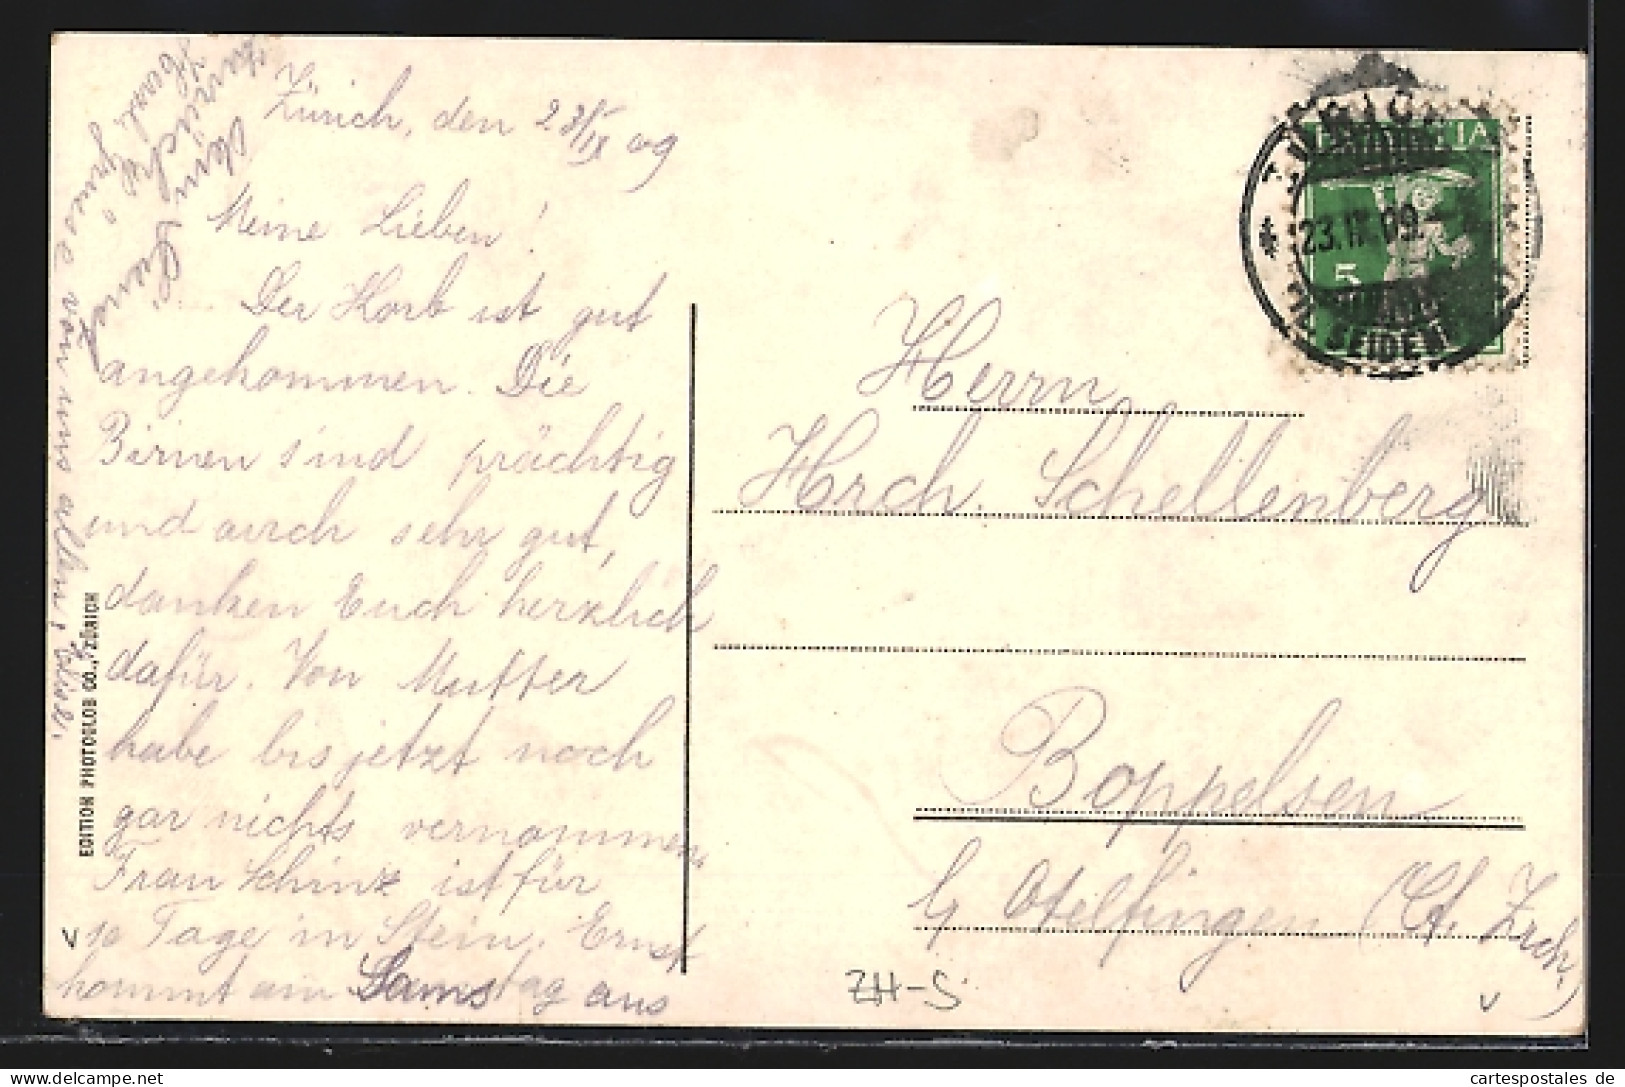 Zürich, den 23/IX 09
Meine Lieben!
Der Korb ist gut
angekommen. Die
Birnen sind prächtig
und auch sehr gut,
danken Euch herzlich
dafür. Von Mutter
habe bis jetzt noch
gar nichts vernommen
Frau Schinz ist für
10 Tage in Stein. Ernst
kommt am Samstag aus
zurück
Herzl. Grüsse von uns allen,
EDITION PHOTOGLOB CO., ZÜRICH
HELVETIA
5
ZÜRICH
23.IX.09.
SEIDEN
Herrn
Hrch. Schellenberg
Boppelsen
b/ Otelfingen (Ct. Zrch.)
ZH-S
v
v
cartespostales de